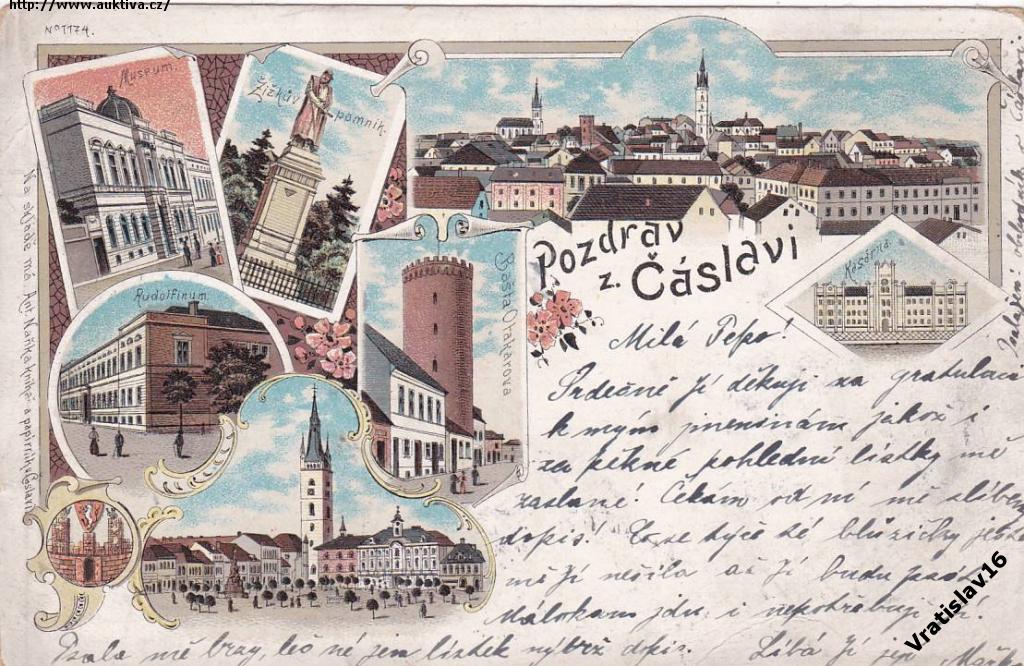 http://www.auktiva.cz/
No 1174.
Museum.
Žižkův
pomník.
Rudolfinum.
Bašta Otakarova
Kasárna.
Pozdrav
z. Čáslavi
Na skladě má Ant. knihk. a papírník v Čáslavi
Milá Pepo!
Srdečně jí děkuji za gratulaci
k mým jmeninám jakož i
za pěkné pohlední lístky mě
zaslané! Čekám od ní mě slíbený
dopis! Co se týče té blůzičky ještě
mě jí nešila až jí budu
Málokam jdu i nepotřebuji jí!
Psala mě brzy, leč né jen lístek nýbrž dopis. Líbá jí
v Čáslavi.
Vratislav16